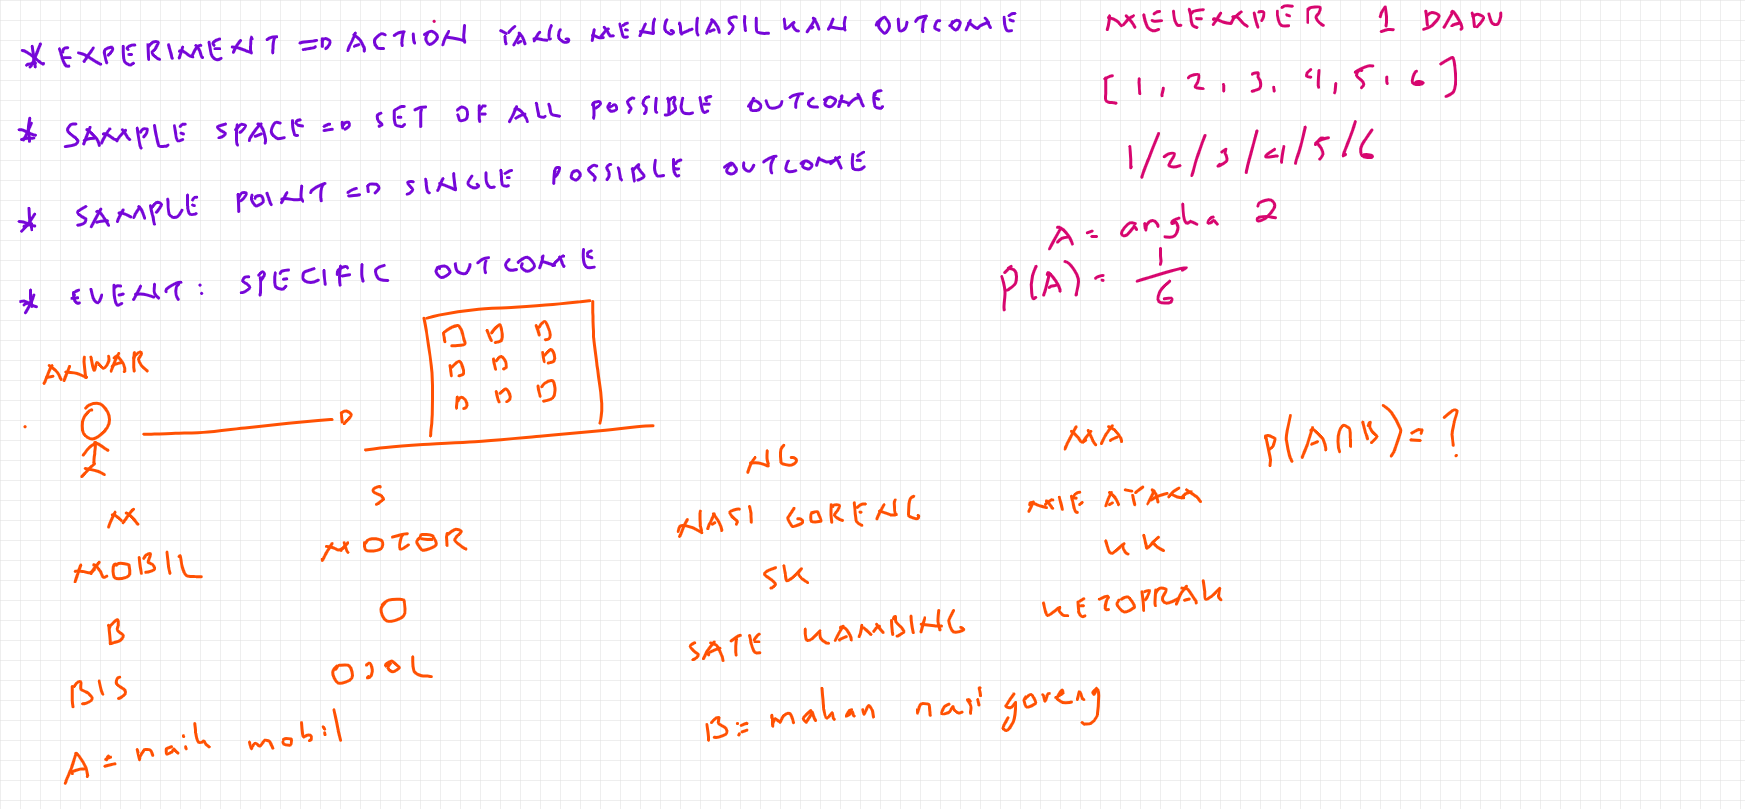 * EXPERIMENT => ACTION YANG MENGHASILKAN OUTCOME
* SAMPLE SPACE => SET OF ALL POSSIBLE OUTCOME
* SAMPLE POINT => SINGLE POSSIBLE OUTCOME
* EVENT: SPECIFIC OUTCOME
MELEMPER 1 DADU
[1, 2, 3, 4, 5, 6]
1/2/3/4/5/6
A = angka 2
P(A) = 1/6
ANWAR
M
MOBIL
S
MOTOR
B
BIS
O
OJOL
A = naik mobil
NG
NASI GORENG
MA
MIE AYAM
SK
SATE KAMBING
KK
KETOPRAK
B = makan nasi goreng
P(A∩B) = ?